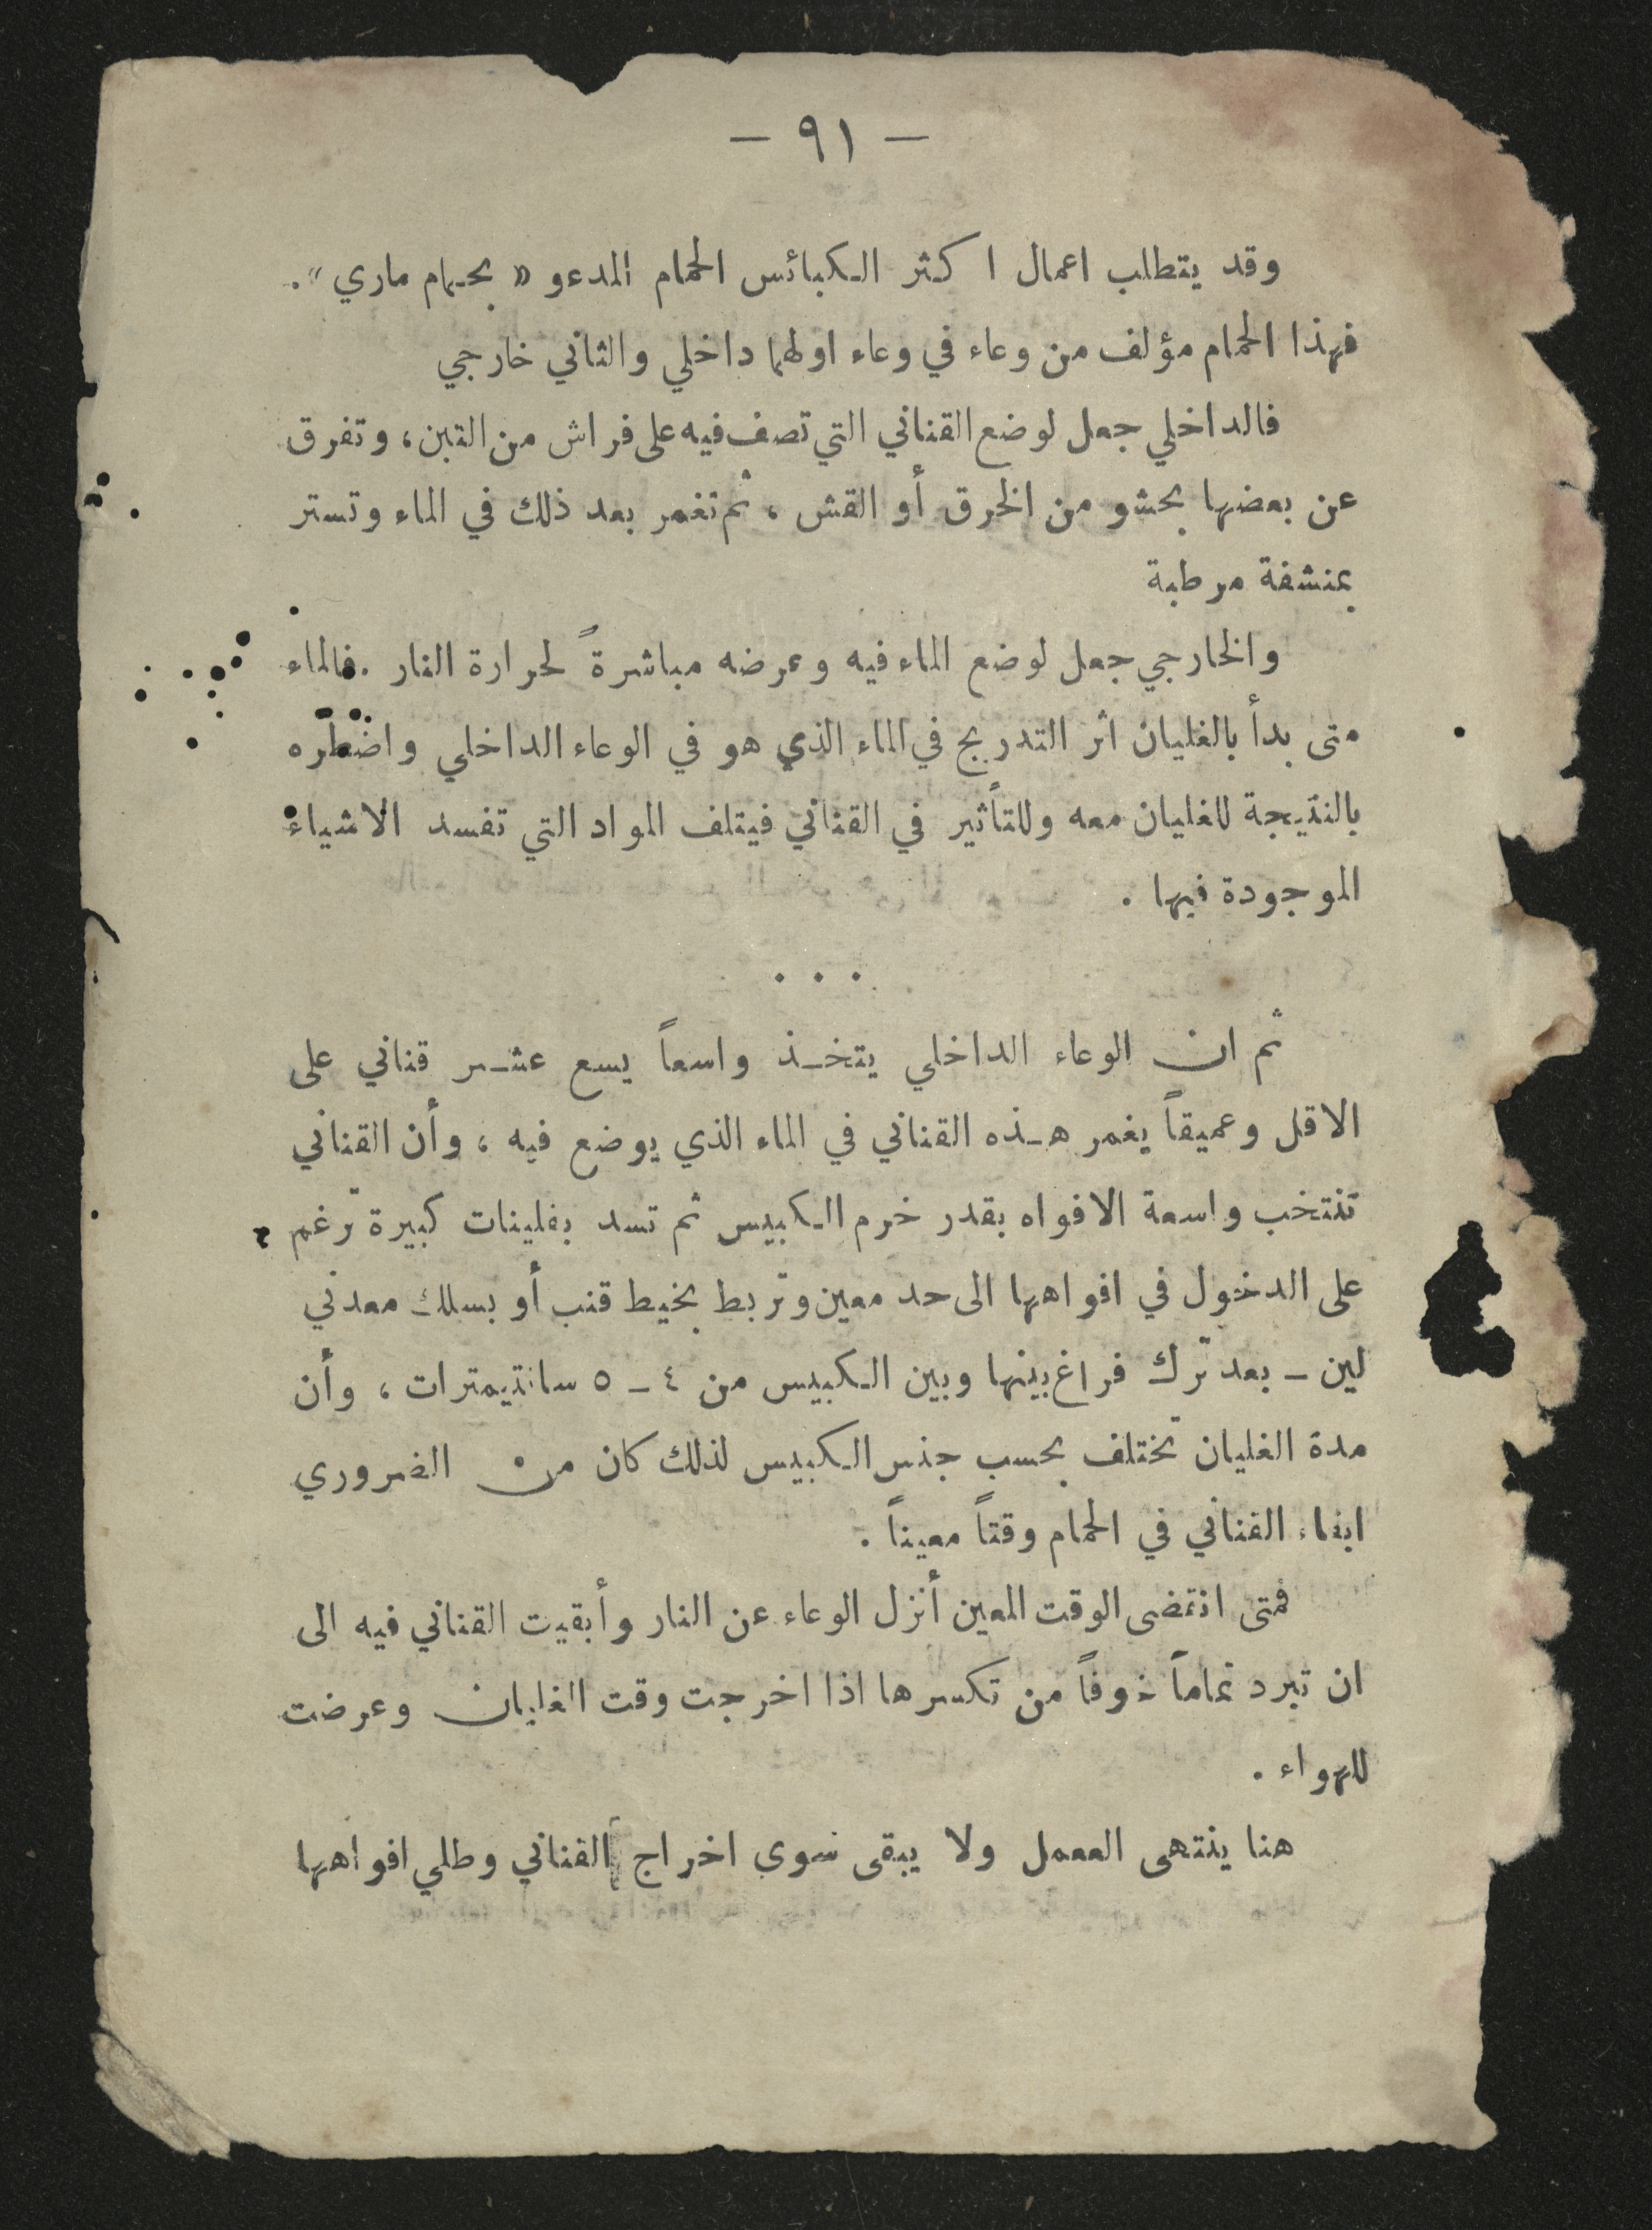 — ٩١ —
وقد يتطلب اعمال اكثر الكبائس الحمام المدعو « بحمام ماري » .
فهذا الحمام مؤلف من وعاء في وعاء اولهما داخلي والثاني خارجي
فالداخلي جعل لوضع القناني التي تصف فيه على فراش من التبن ، وتفرق
عن بعضها بحشو من الخرق أو القش ، ثم تغمر بعد ذلك في الماء وتستر
بمنشفة مرطبة
والخارجي جعل لوضع الماء فيه وعرضه مباشرةً لحرارة النار . فالماء
متى بدأ بالغليان اثر التدريج في الماء الذي هو في الوعاء الداخلي واضطره
بالنتيجة للغليان معه وللتأثير في القناني فيتلف المواد التي تفسد الاشياء
الموجودة فيها .
. . .
ثم ان الوعاء الداخلي يتخذ واسعاً يسع عشر قناني على
الاقل وعميقاً يغمر هذه القناني في الماء الذي يوضع فيه ، وأن القناني
تنتخب واسعة الافواه بقدر خرم الكبيس ثم تسد بفلينات كبيرة ترغم
على الدخول في افواهها الى حد معين وتربط بخيط قنب أو بسلك معدني
لين – بعد ترك فراغ بينها وبين الكبيس من ٤ – ٥ سانتيمترات ، وأن
مدة الغليان تختلف بحسب جنس الكبيس لذلك كان من الضروري
ابقاء القناني في الحمام وقتاً معيناً .
فمتى انقضى الوقت المعين أنزل الوعاء عن النار وأبقيت القناني فيه الى
ان تبرد تماماً خوفاً من تكسرها اذا اخرجت وقت الغليان وعرضت
للهواء .
هنا ينتهى العمل ولا يبقى سوى اخراج القناني وطلي افواهها